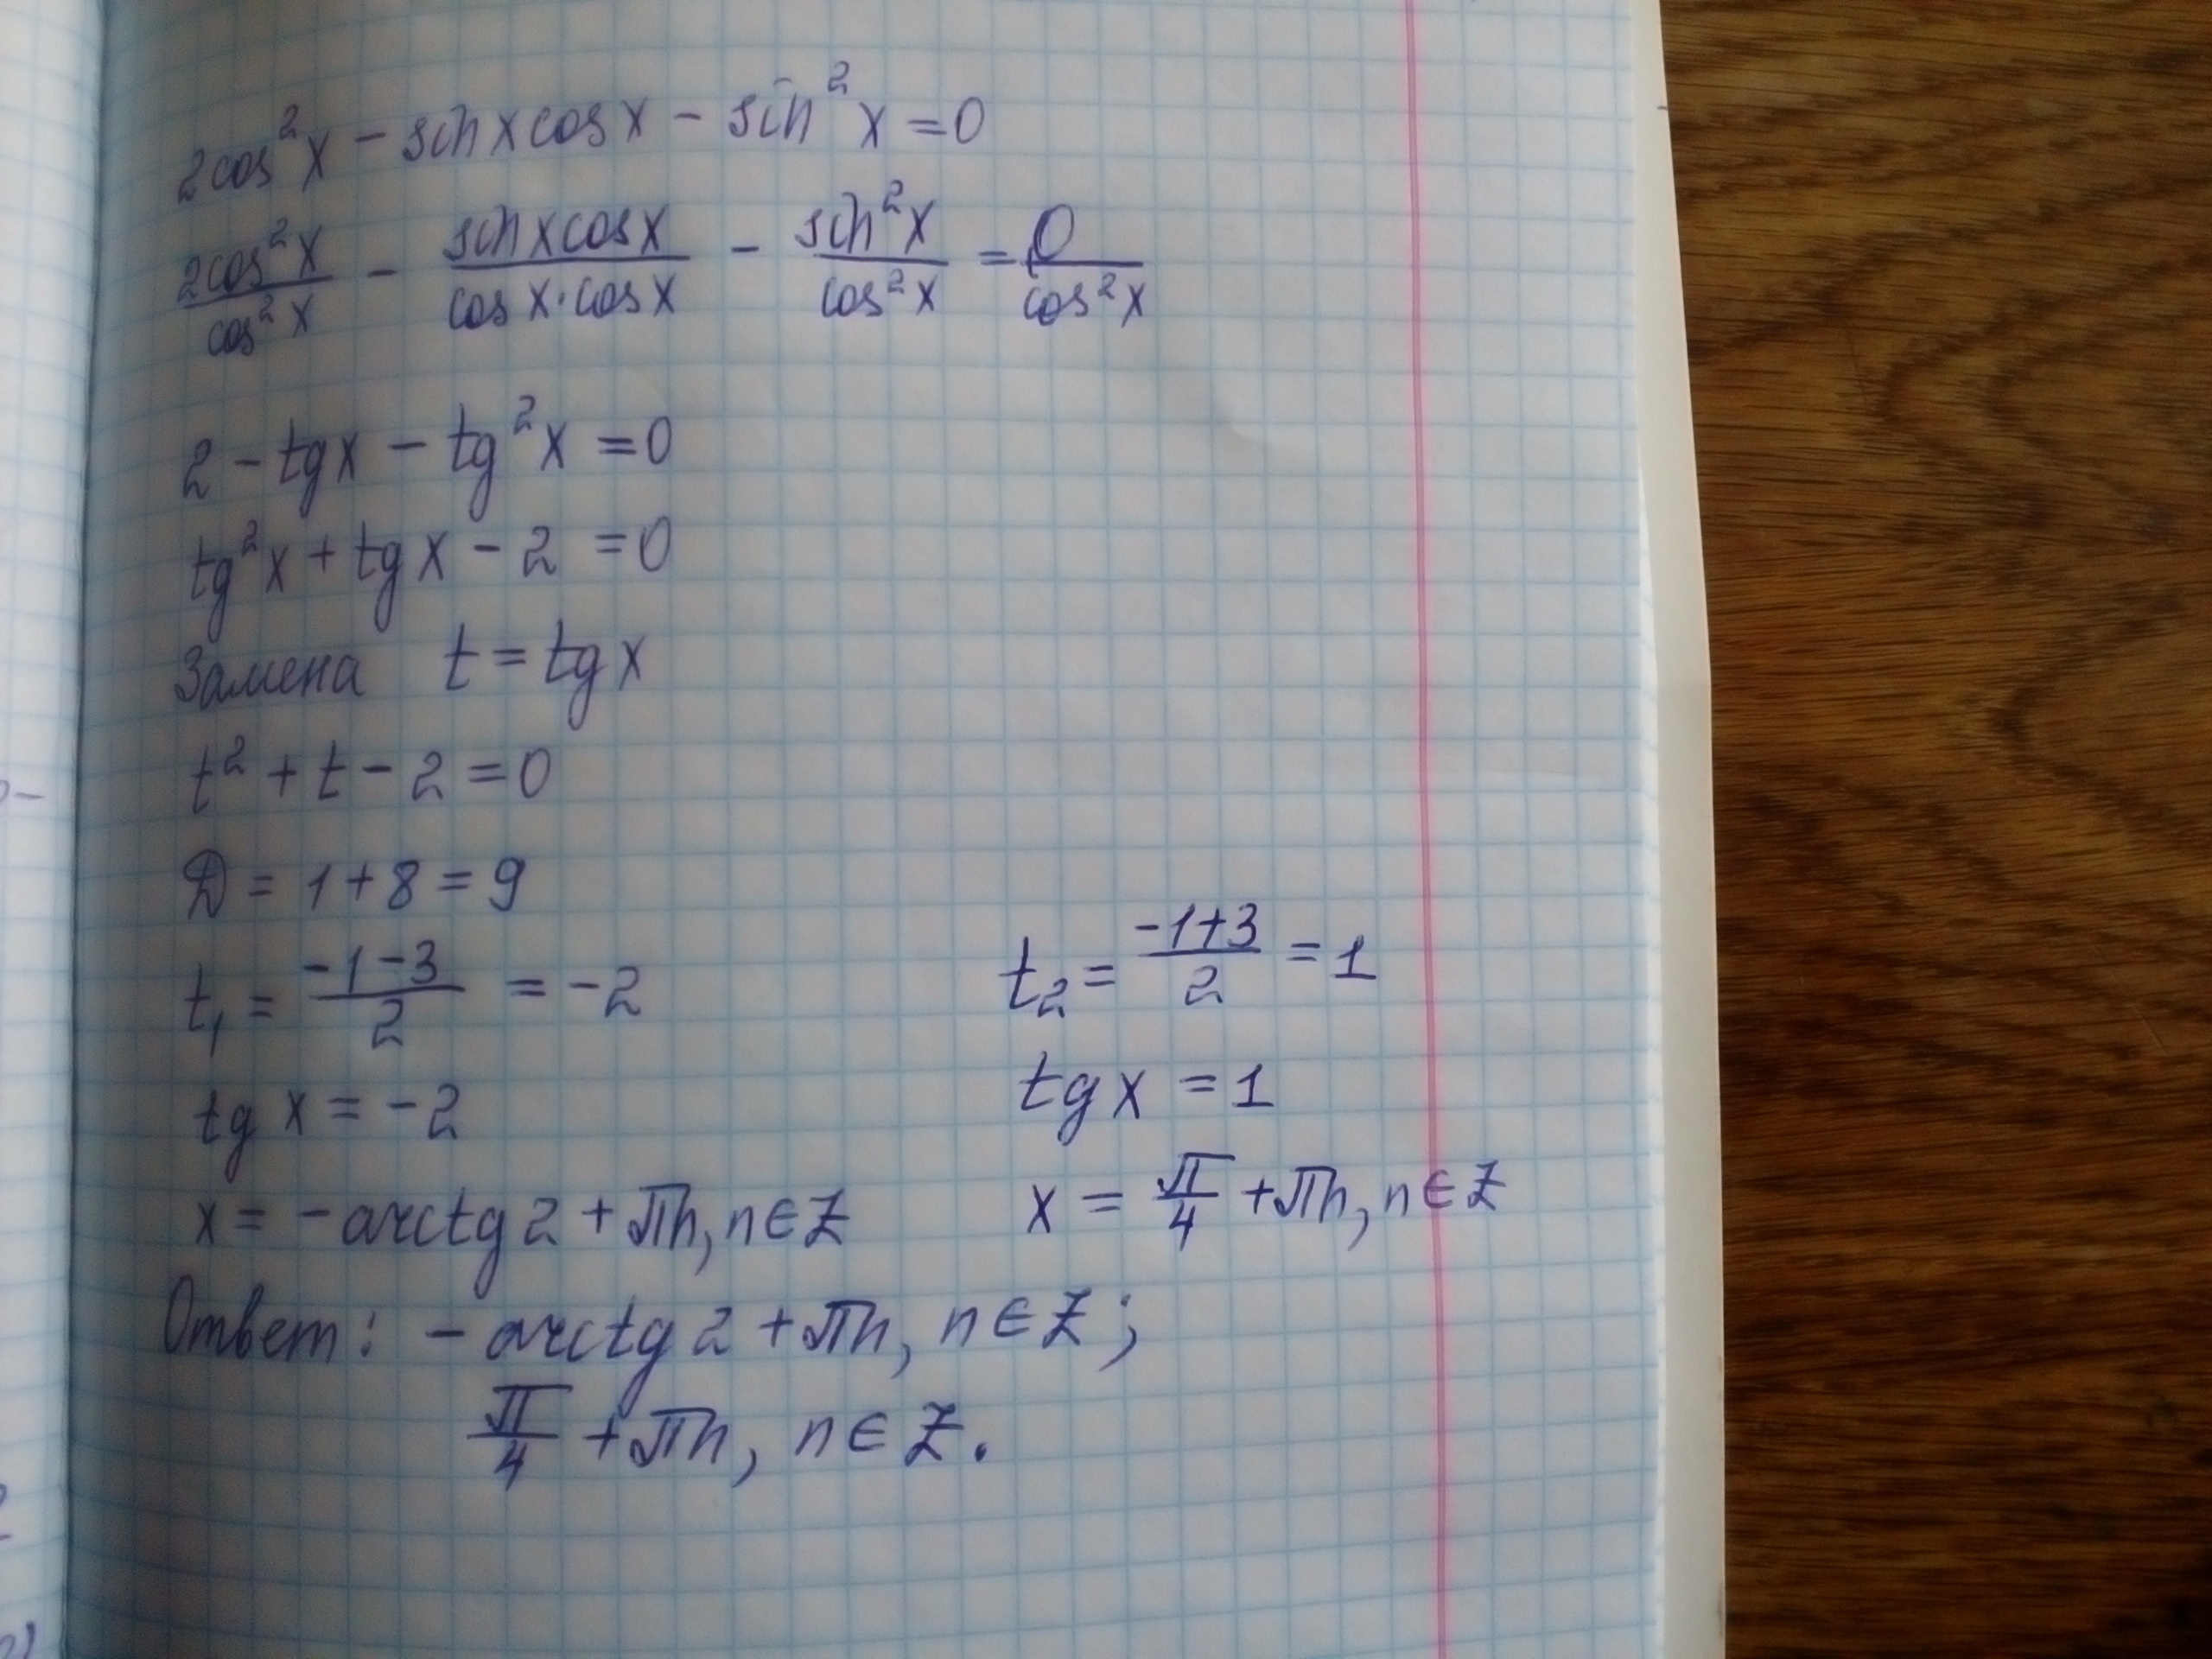 2cos²x - sin x cos x - sin²x = 0
2cos²x/cos²x - sin x cos x/cos x · cos x - sin²x/cos²x = 0/cos²x
2 - tg x - tg²x = 0
tg²x + tg x - 2 = 0
Замена t = tg x
t² + t - 2 = 0
D = 1 + 8 = 9
t₁ = -1-3/2 = -2 t₂ = -1+3/2 = 1
tg x = -2 tg x = 1
x = -arctg 2 + πn, n ∈ Z x = π/4 + πn, n ∈ Z
Ответ: -arctg 2 + πn, n ∈ Z;
π/4 + πn, n ∈ Z.